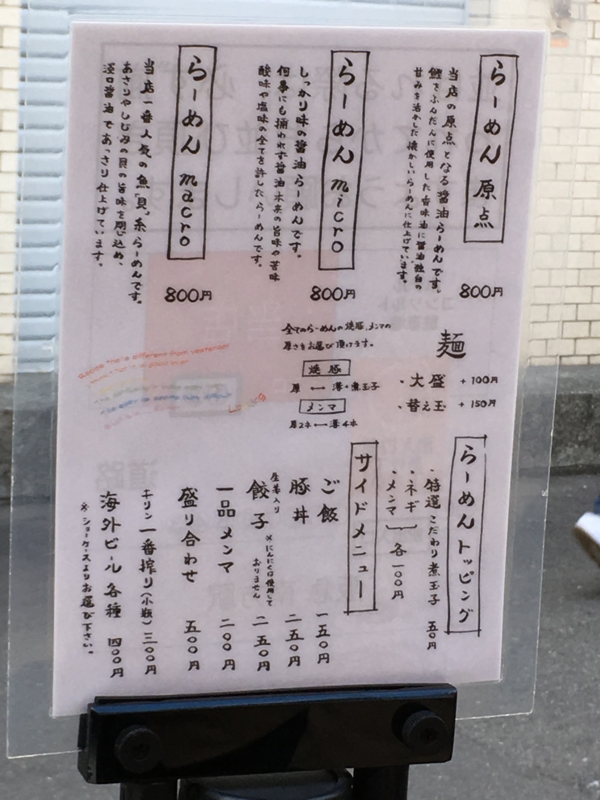 らーめん 原点
当店の原点となる醤油らーめんです。
鰹をふんだんに使用した香味油に醤油独自の
甘みを活かした懐かしいらーめんに仕上げています。
800円
らーめん micro
しっかり味の醤油らーめんです。
何事にも捕われず醤油本来の旨味や苦味
酸味や塩味の全てを許したらーめんです。
800円
らーめん macro
当店一番人気の魚「貝」系らーめんです。
あさりやしじみの貝の旨味を閉じ込め、
淡口醤油であっさり仕上げています。
800円
麺
・大盛 +100円
・替え玉 +150円
全てのらーめんの焼豚、メンマの
厚さをお選び頂けます。
焼豚
厚 ⟷ 薄・煮玉子
メンマ
厚2本 ⟷ 薄4本
らーめんトッピング
・特選こだわり煮玉子 五〇円
・ネギ
・メンマ 各一〇〇円
サイドメニュー
ご飯 一五〇円
豚丼 二五〇円
生姜入り
餃子 二五〇円
※にんにくは使用して
おりません
一品メンマ 二〇〇円
盛り合わせ 五〇〇円
キリン一番搾り(小瓶) 三〇〇円
海外ビール各種 四〇〇円
※ショーケースよりお選び下さい。